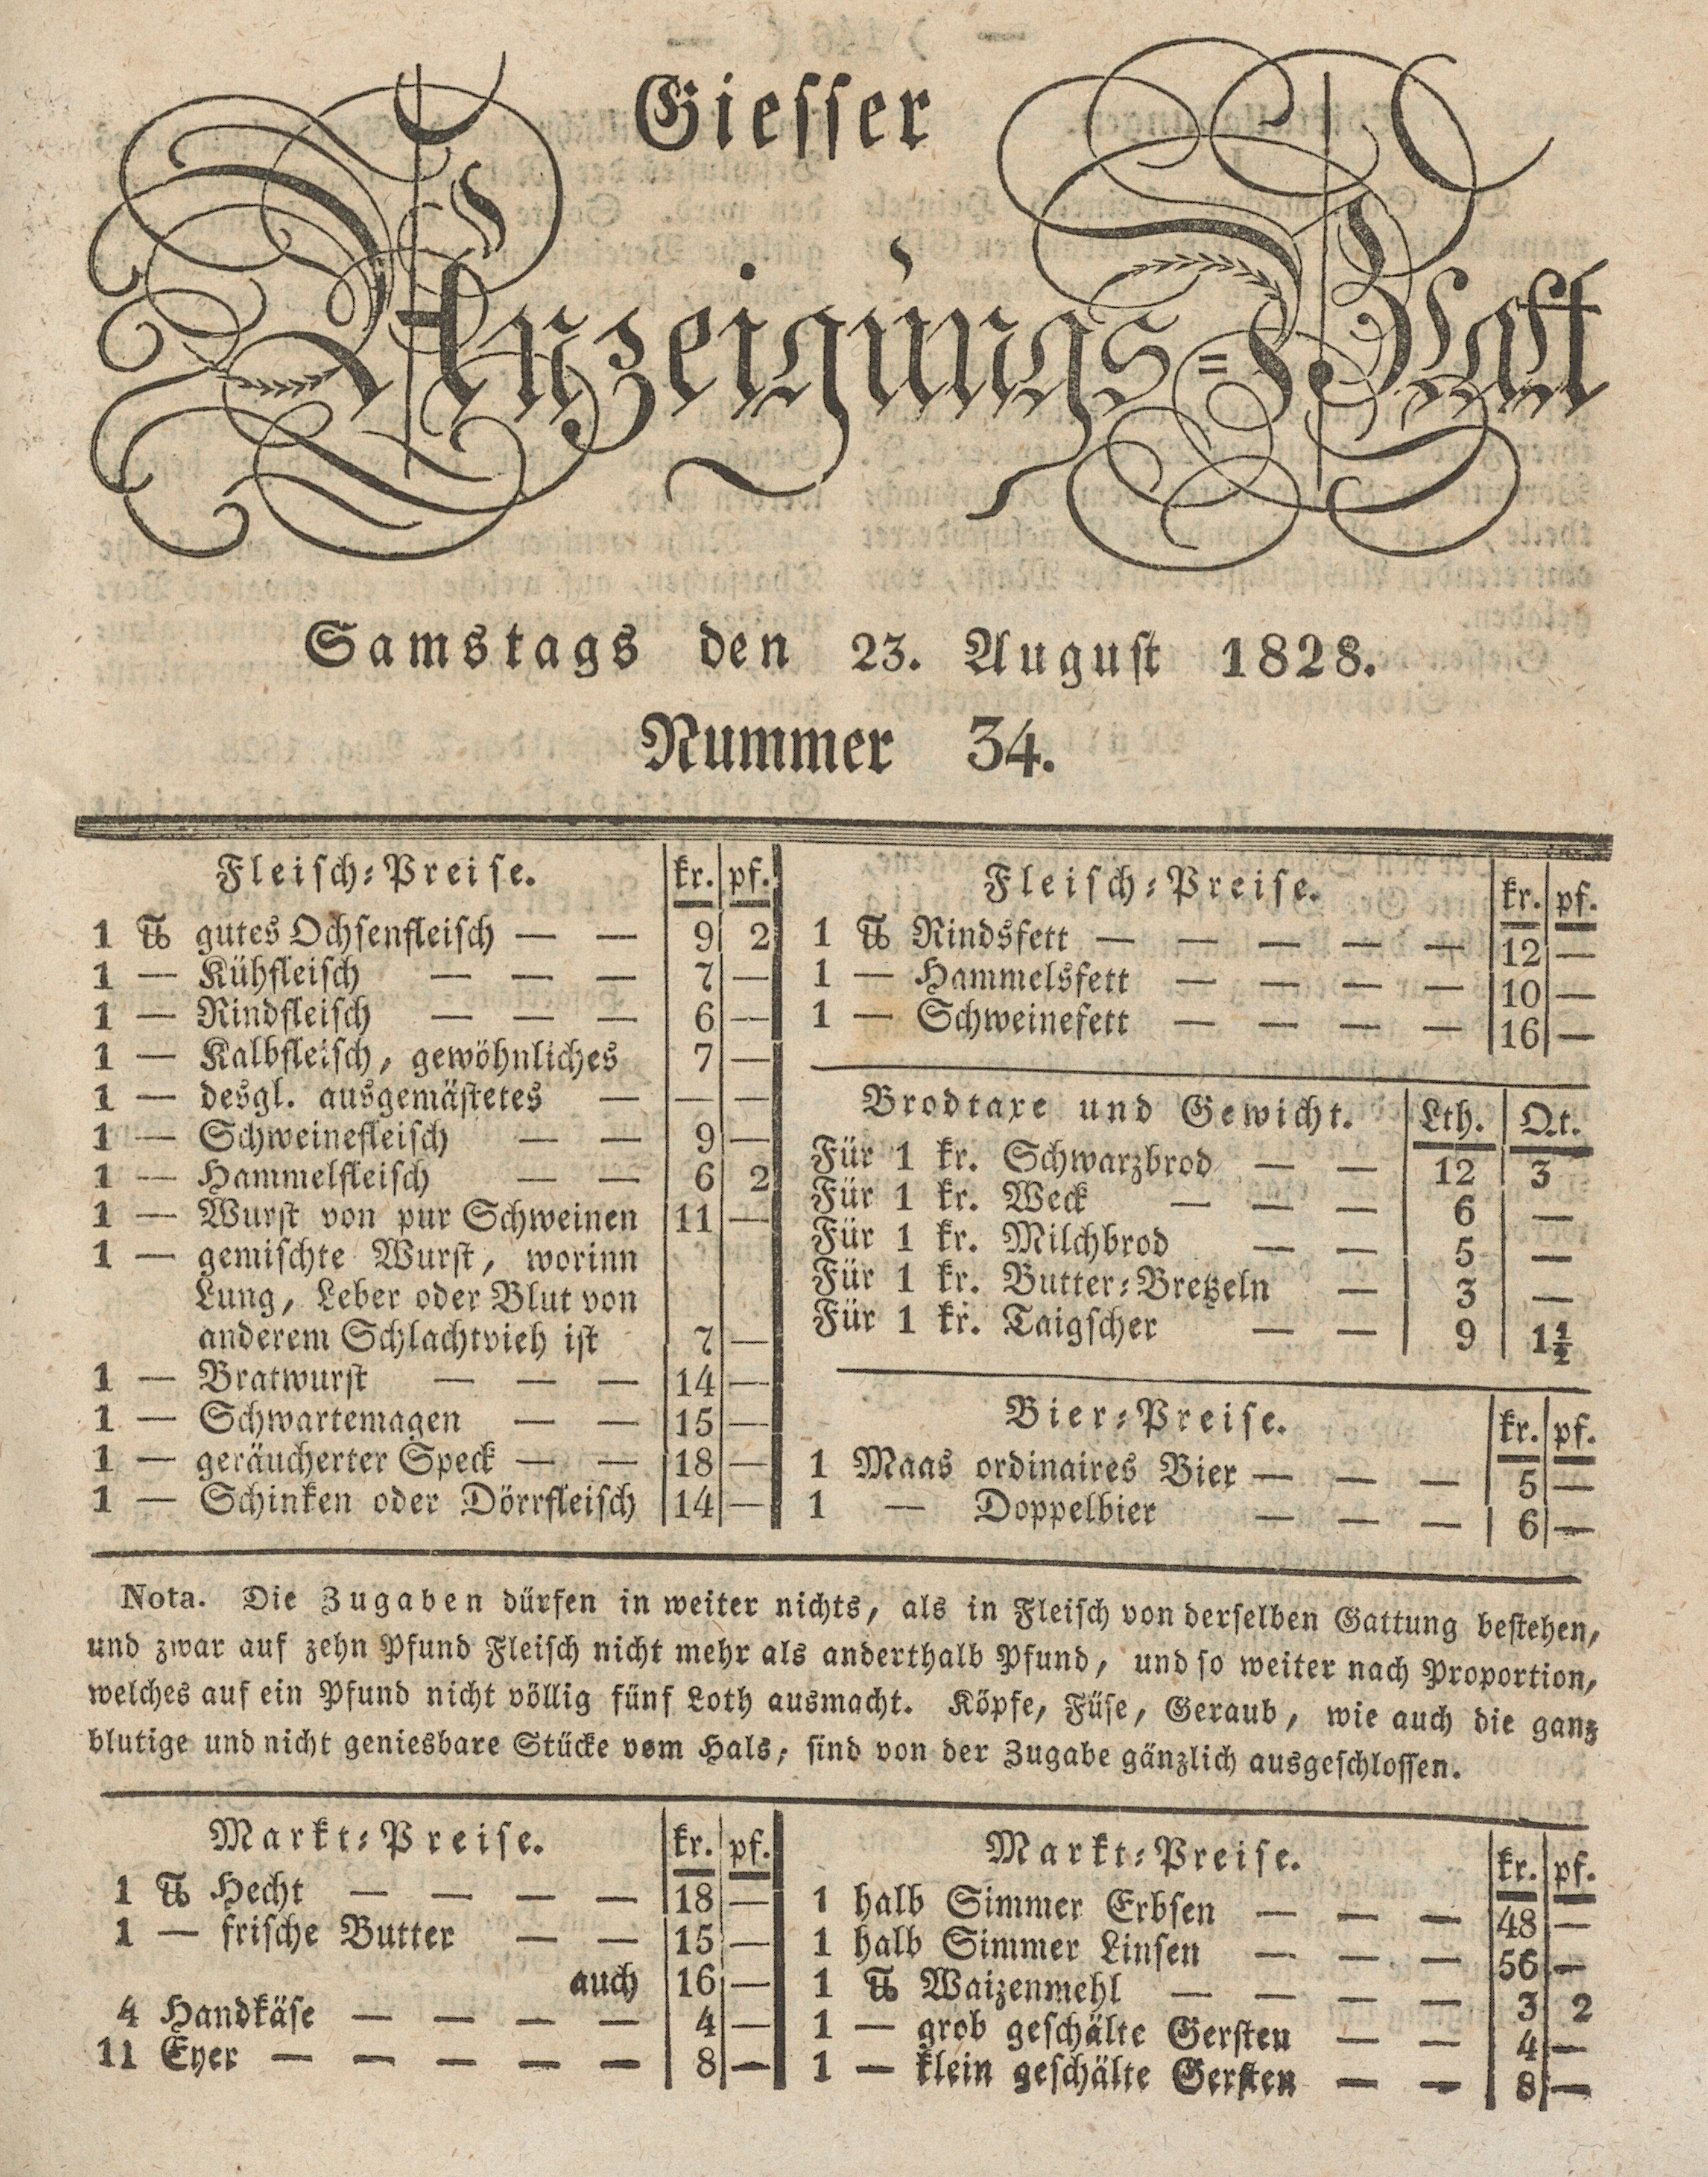 Giesser
Anzeigungs=Blatt
Samstags den 23. August 1828.
Nummer 34.
Fleisch=Preise. kr. pf.
1 ℔ gutes Ochsenfleisch — — 9 2
1 — Kühfleisch — — — 7 —
1 — Rindfleisch — — — 6 —
1 — Kalbfleisch, gewöhnliches 7 —
1 — desgl. ausgemästetes — — —
1 — Schweinefleisch — — 9 —
1 — Hammelfleisch — — 6 2
1 — Wurst von pur Schweinen 11 —
1 — gemischte Wurst, worinn
Lung, Leber oder Blut von
anderem Schlachtvieh ist 7 —
1 — Bratwurst — — — 14 —
1 — Schwartemagen — — 15 —
1 — geräucherter Speck — — 18 —
1 — Schinken oder Dörrfleisch 14 —
Fleisch=Preise. kr. pf.
1 ℔ Rindsfett — — — — — 12 —
1 — Hammelsfett — — — — 10 —
1 — Schweinefett — — — — 16 —
Brodtaxe und Gewicht. Lth. Qt.
Für 1 kr. Schwarzbrod — — 12 3
Für 1 kr. Weck — — — 6 —
Für 1 kr. Milchbrod — — 5 —
Für 1 kr. Butter=Bretzeln — 3 —
Für 1 kr. Taigscher — — 9 1½
Bier=Preise. kr. pf.
1 Maas ordinaires Bier — — — 5 —
1 — Doppelbier — — — 6 —
Nota. Die Zugaben dürfen in weiter nichts, als in Fleisch von derselben Gattung bestehen,
und zwar auf zehn Pfund Fleisch nicht mehr als anderthalb Pfund, und so weiter nach Proportion,
welches auf ein Pfund nicht völlig fünf Loth ausmacht. Köpfe, Füse, Geraub, wie auch die ganz
blutige und nicht geniesbare Stücke vom Hals, sind von der Zugabe gänzlich ausgeschlossen.
Markt=Preise. kr. pf.
1 ℔ Hecht — — — — 18 —
1 — frische Butter — — 15 —
auch 16 —
4 Handkäse — — — — 4 —
11 Eyer — — — — — 8 —
Markt=Preise. kr. pf.
1 halb Simmer Erbsen — — — 48 —
1 halb Simmer Linsen — — — 56 —
1 ℔ Waizenmehl — — — — 3 2
1 — grob geschälte Gersten — — 4 —
1 — klein geschälte Gersten — — 8 —